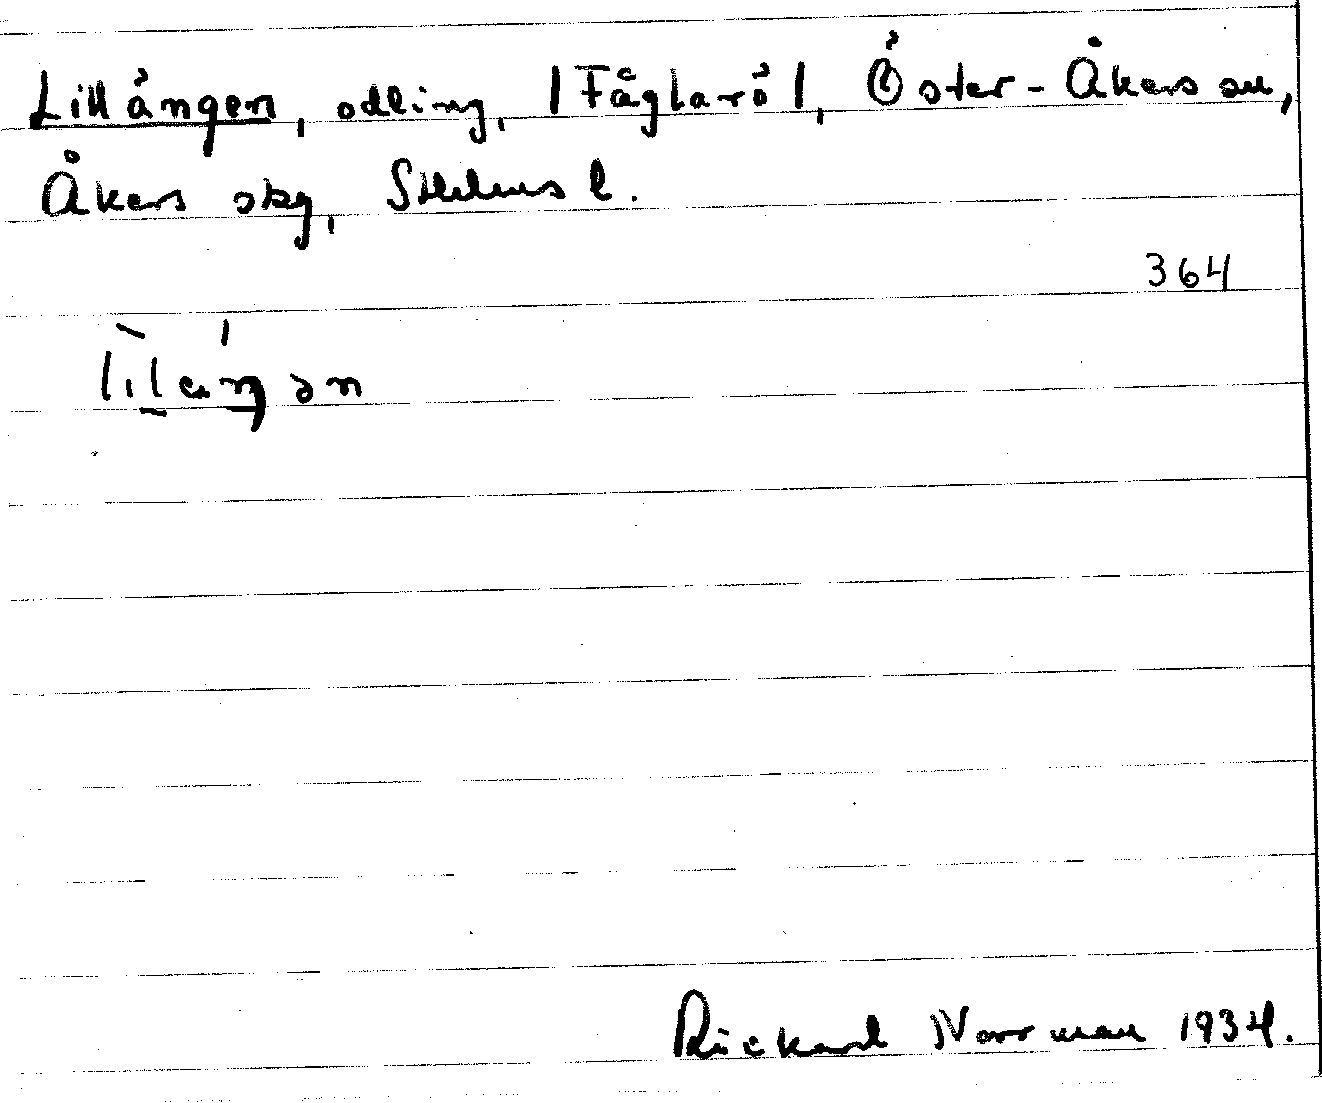 Lillängen, odling, /Fåglarö/, Öster-Åkers sn,
Åkers skg, Sthlms l.
364
lìlàŋən
Rickard Norrman 1934.